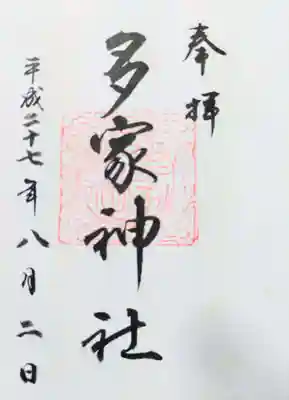 奉拝
多家神社
平成二十七年八月二日